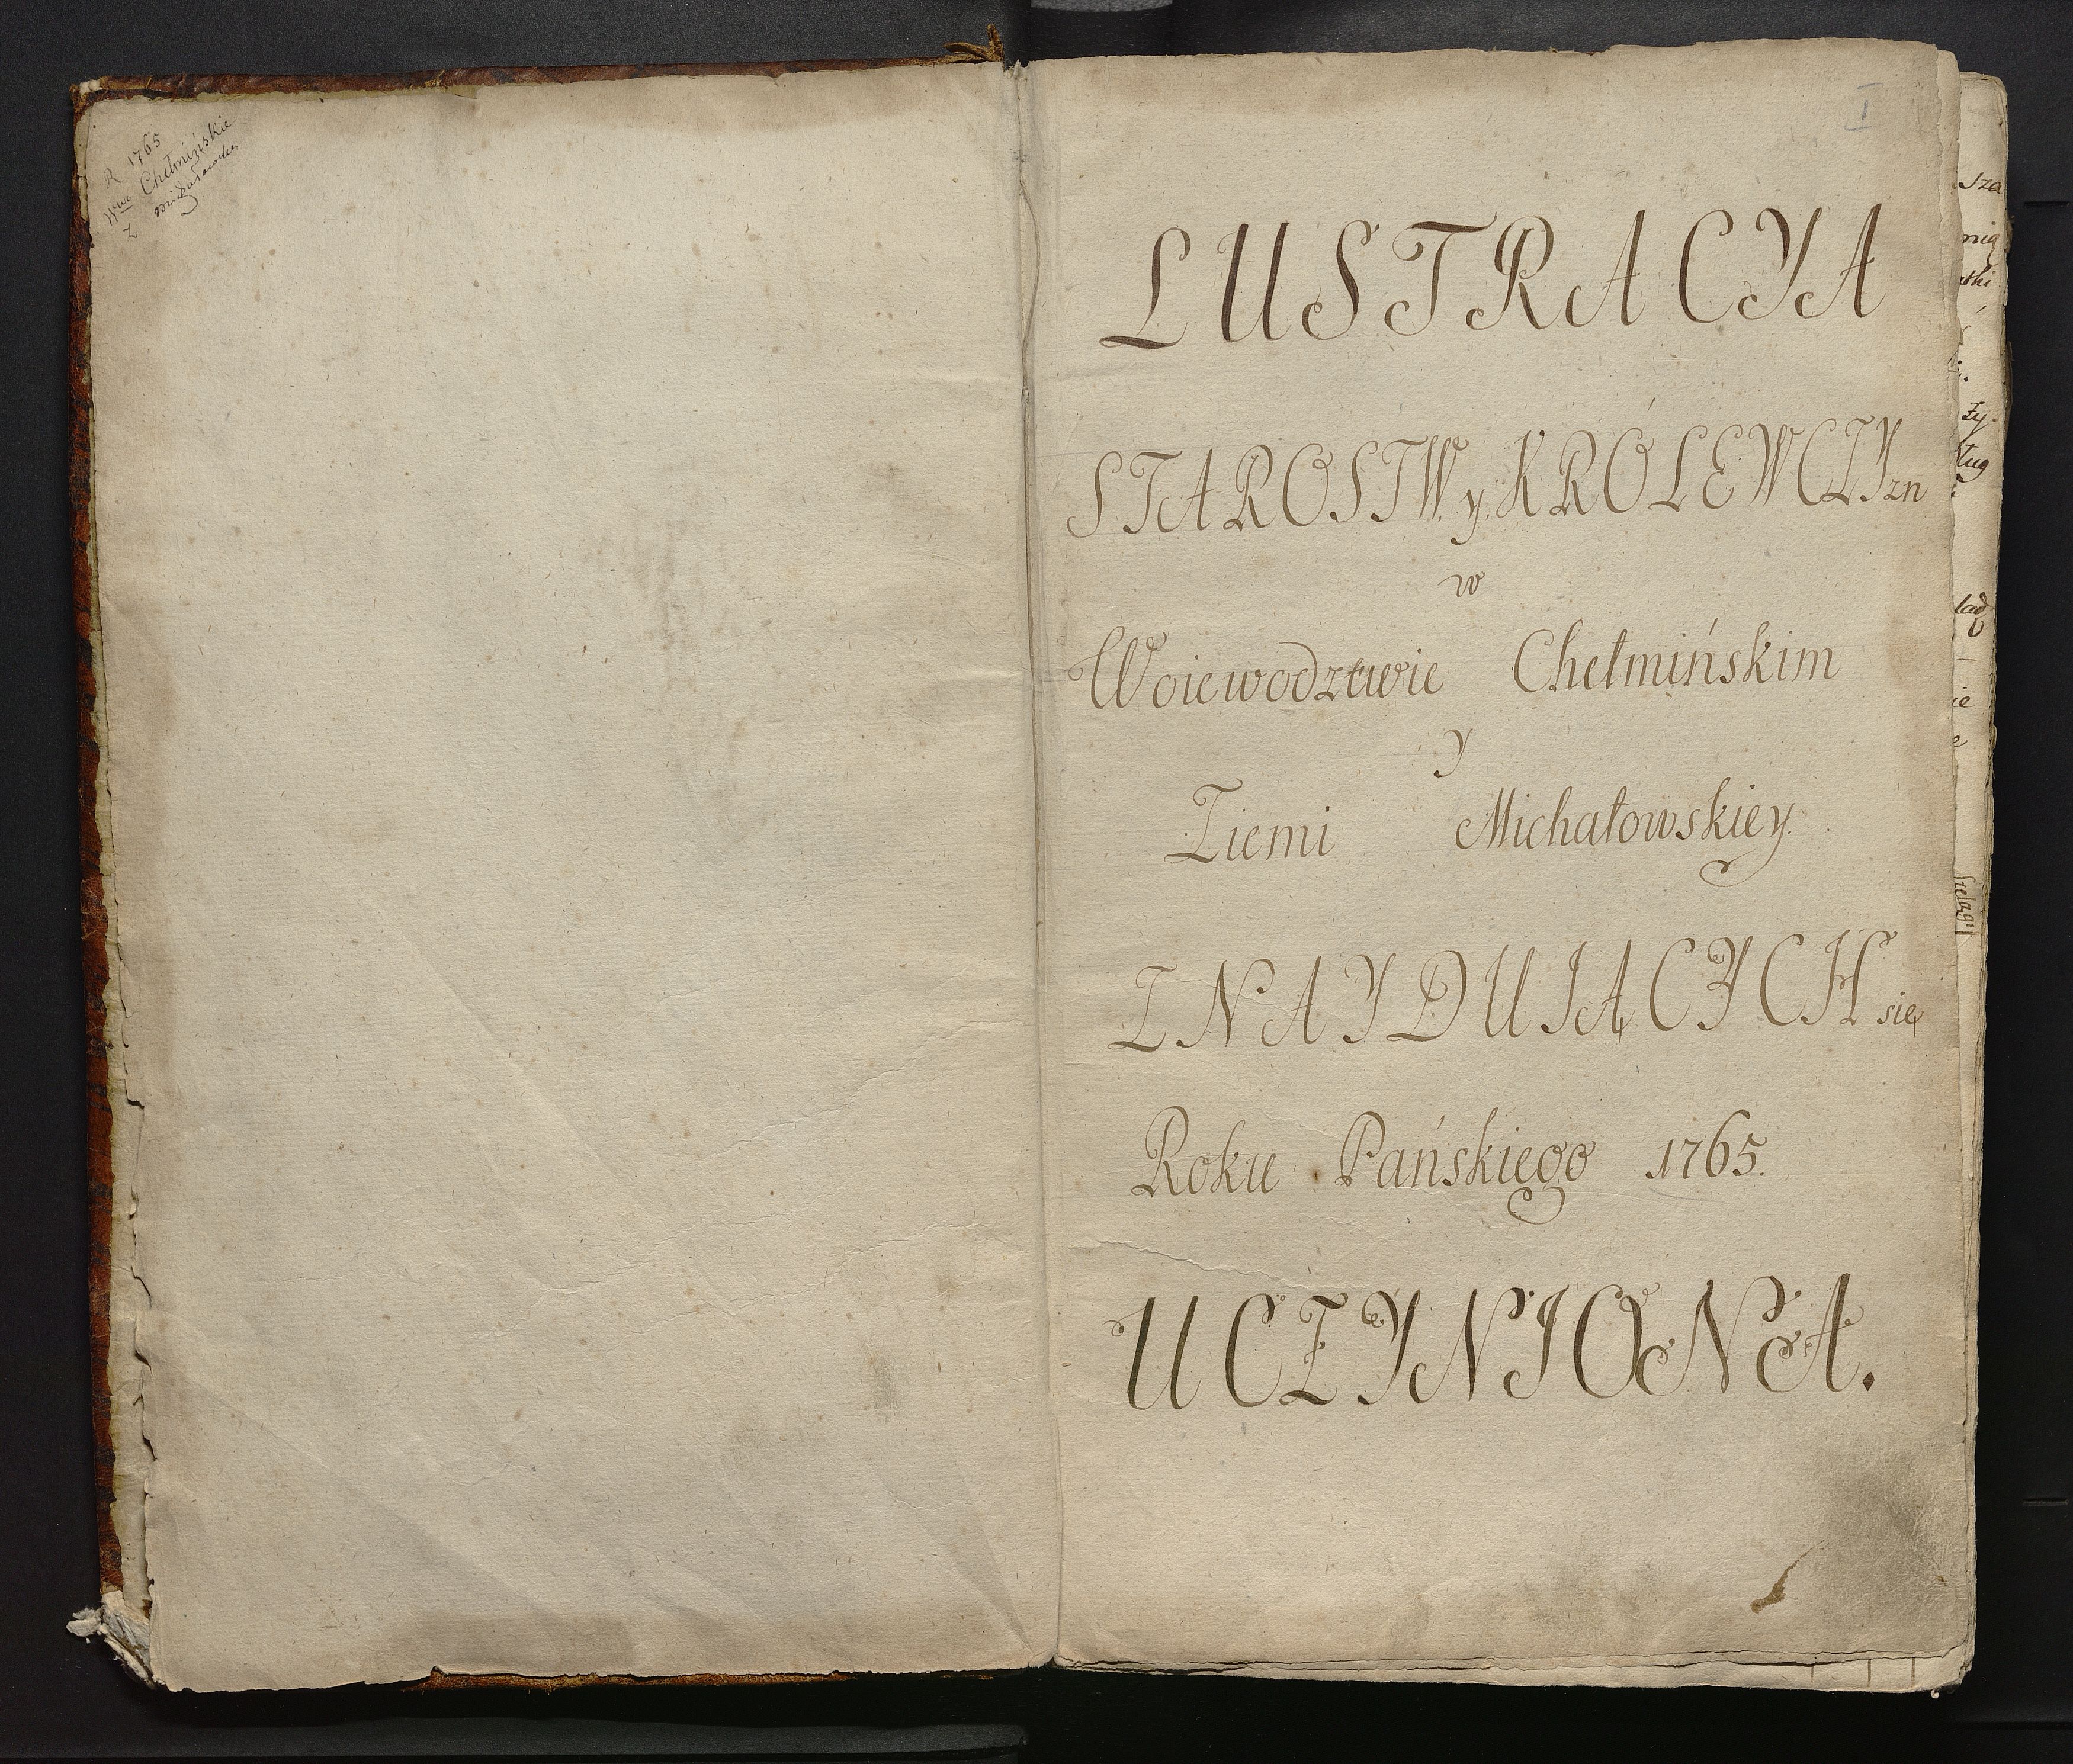 R 1765
Wwa Chełmińskie
Z
I
LUSTRACYA
STAROSTW y KRÓLEWCZYzn
w
Woiewodztwie Chełmińskim
y
Ziemi Michałowskiey
ZNAYDUIĄCYCH się
Roku Pańskiego 1765.
UCZYNIONA.